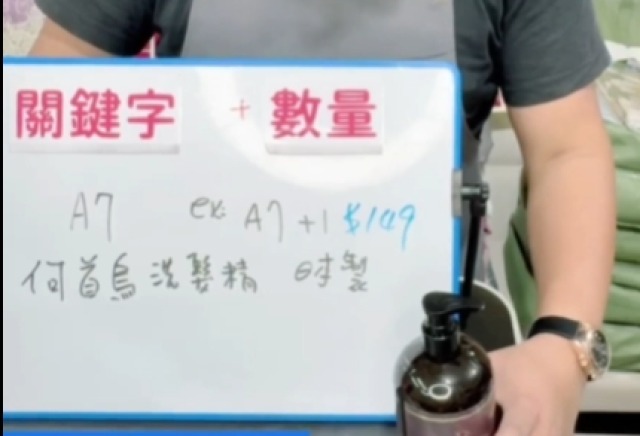 關鍵字 + 數量
A7 ex: A7 +1 $149
何首烏洗髮精 日本製